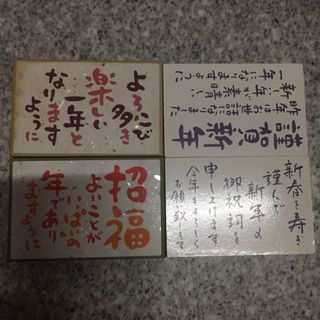 よろこび
多き
楽しい
一年と
なります
ように
謹賀新年
昨年はお世話になりました
新しい年が素晴しい
一年になりますように
招福
よいことが
いっぱいの
年であり
ますように
新春を寿ぎ
謹んで
新年の
御祝詞を
申し上げます
今年もよろしく
お願い致します